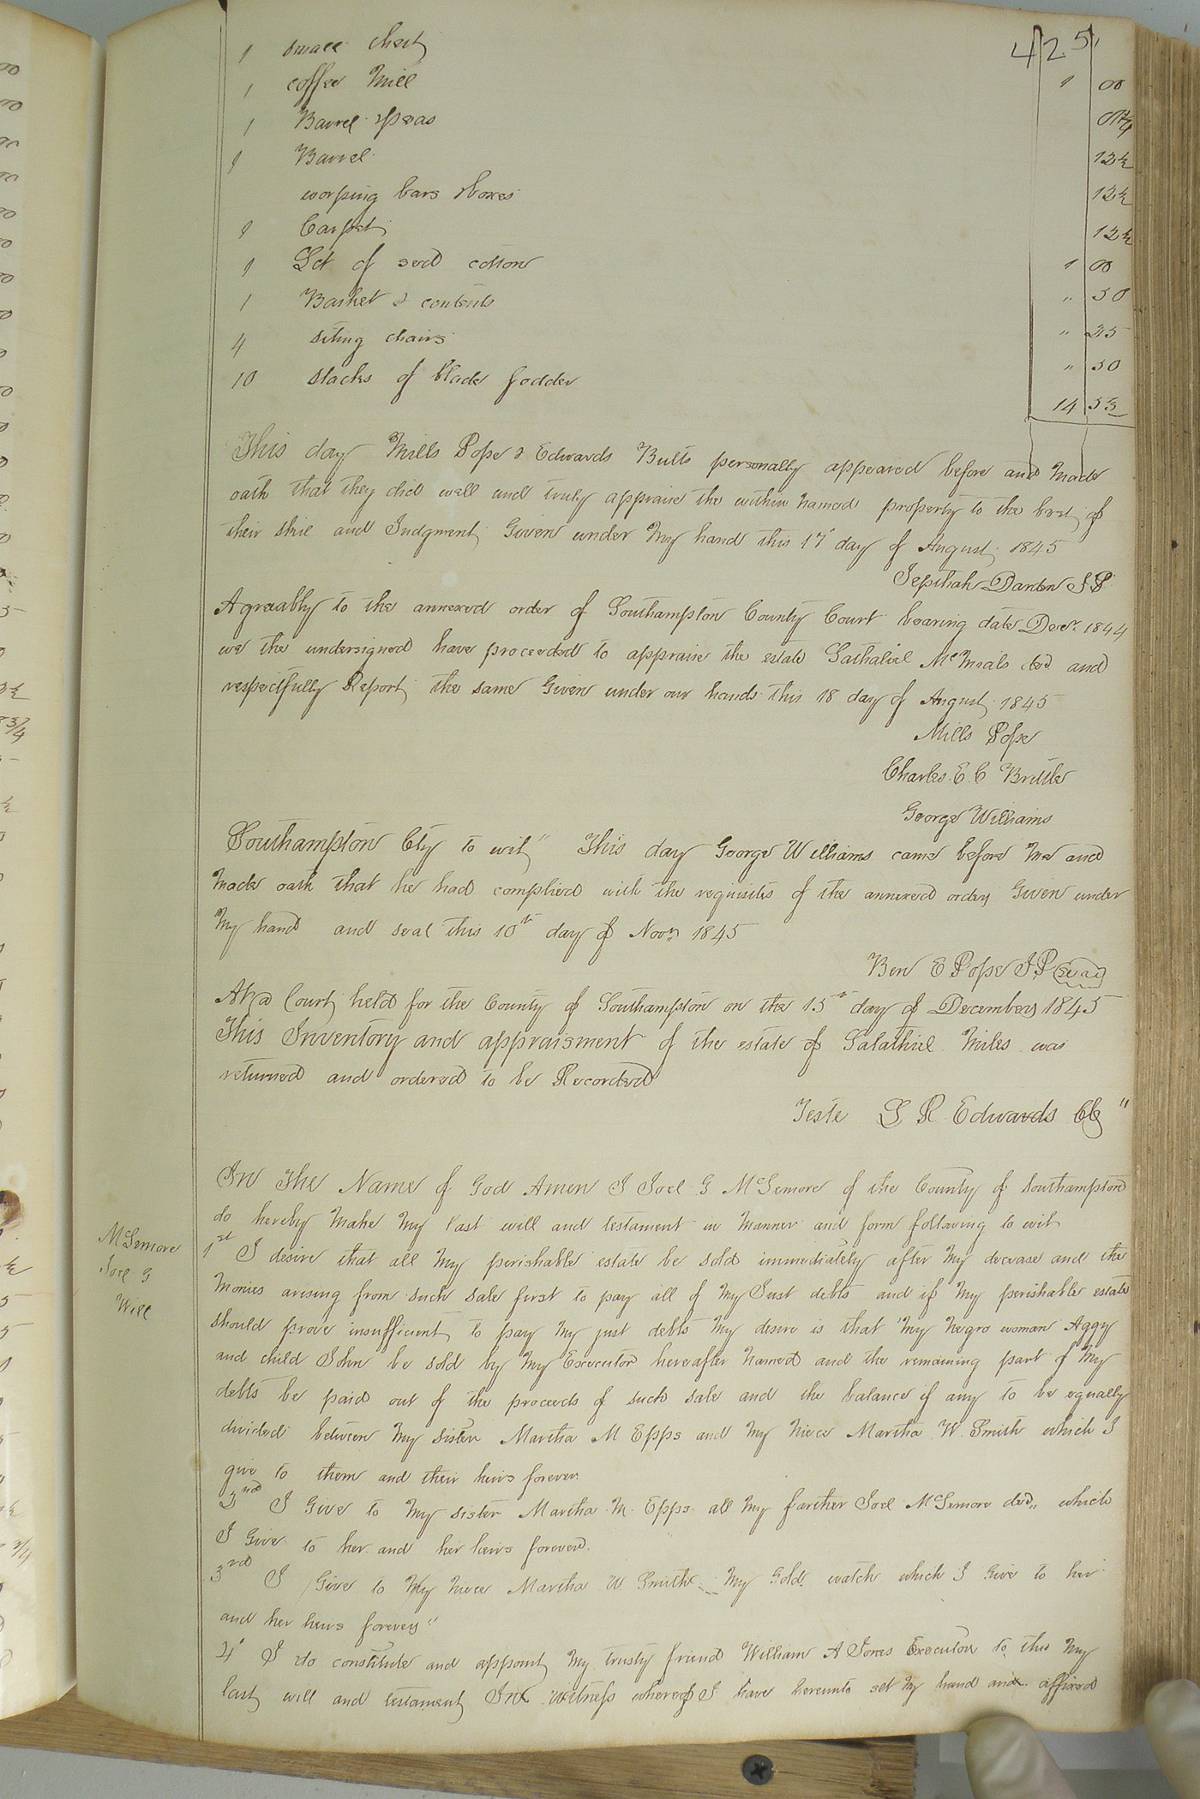 425
1 small chest
1 coffee Mill 1 00
1 Barrel & peas 06¼
1 Barrel 12½
worping bars & boxes 12½
1 Carpet 12½
1 Lot of seed cotton 1 00
1 Basket & contents " 50
4 siting chairs " 25
10 stacks of blade fodder " 50
14 53
This day Mills Pope & Edwards Butts personally appeared before and Made
oath that they did well and truly appraise the within Named property to the best of
their skil and Judgment Given under My hand this 17 day of August 1845
Jepthah Darden J P
Agreeably to the annexed order of Southampton County Court bearing date Decr. 1844
we the undersigned have proceeded to appraise the estate Sathaliel McMials decd and
respectfully Report the same Given under our hands this 18 day of August 1845
Mills Pope
Charles E C Brittle
George Williams
Southampton Cty to wit" This day George Williams came before Me and
Made oath that he had complied with the requisites of the annexed order Given under
My hand and seal this 10th day of Novr 1845
Ben E Pope J.P seal
At a Court held for the County of Southampton on the 15th day of December 1845
This Inventory and appraisment of the estate of Salathiel Miles was
returned and ordered to be Recorded
Teste L R Edwards Clk"
McLemore
Joel G
Will
In The Name of God Amen I Joel G McLemore of the County of Southampton
do hereby Make My last will and testament in Manner and form following to wit
1st I desire that all My perishable estate be sold immediately after My decease and the
Monies arising from such sale first to pay all of My Just debts and if My perishable estate
should prove insufficient to pay My just debts My desire is that My Negro woman Aggy
and child John be sold by My Executor hereafter Named and the remaining part of My
debts be paid out of the proceeds of such sale and the balance if any to be equally
divided between My sister Martha M Epps and My Niece Martha W Smith which I
give to them and their heirs forever
2nd I Give to My sister Martha M. Epps all My farther Joel McLemore decd, which
I Give to her and her heirs forever.
3rd I Give to My Niece Martha W Smith My Gold watch which I Give to her
and her heirs forever"
4th I do constitute and appoint My trusty friend William A Jones Executor to this My
last will and testament In Witness whereof I have hereunto set My hand and affixed